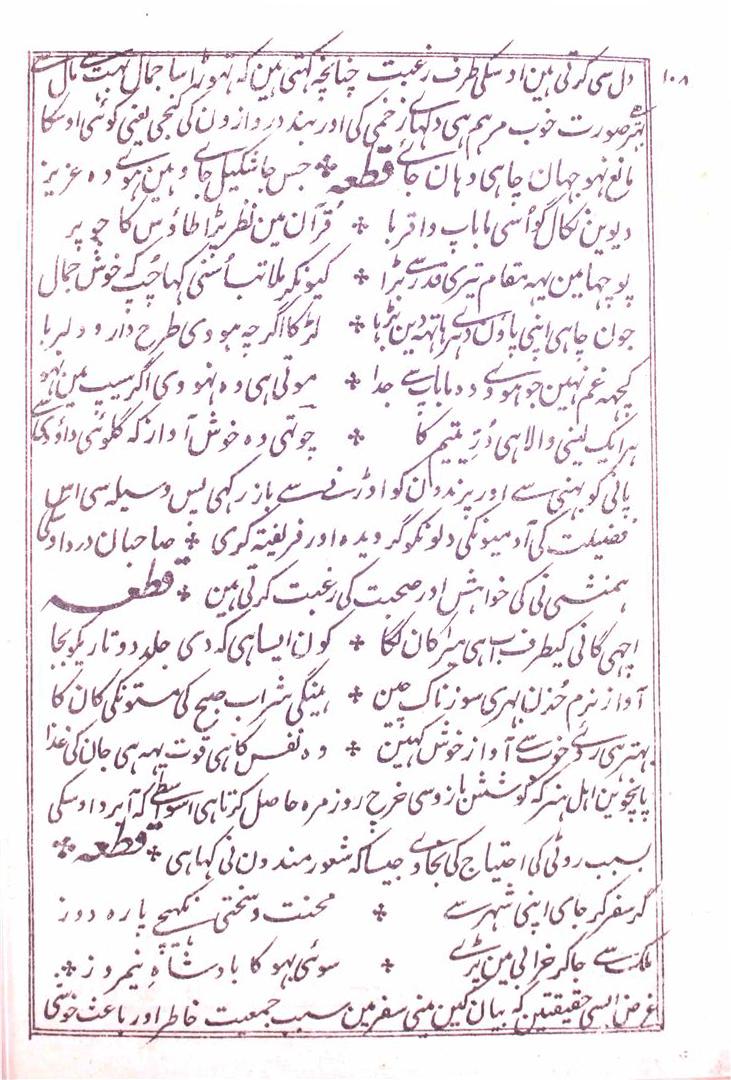 ۱۰۸
دل سی کرتی ہین اوسکی طرف رغبت چنانچہ کہتی ہین کہ تہوڑا سا جمال بہت سے مال سے
بہتر صورت خوب مرہم ہی دلہاے زخمی کی اور بند دروازون کی کنجی یعنی کوئی اوسکا
مانع نہو جہان چاہی وہان جائے قطعہ ⁜ جس جا شکیل جاے وہین ہوے وہ عزیز
دیوین نکال گو اُسی ما باپ و اقربا ⁜ قرآن مین نظر پڑا طاؤس کا جو پر
پوچہا مین یہہ مقام تیری قدر سے بڑا ⁜ کیونکر ملا تب اُسنی کہا چُپ کہ خوش جمال
جون چاہی اپنی پاؤن دہرے ہاتہہ دین بڑہا ⁜ لڑکا اگرچہ ہووی طرح دار و دلربا
کچہہ غم نہین جو ہووے وہ ما باپ سے جدا ⁜ موتی ہی وہ نہووی اگر سیپ مین نہو
ہر ایک لینی والا ہی دُرِّ یتیم کا ⁜ چوتہی وہ خوش آواز کہ گلوئی داؤدی سے
پانی کو بہنی سے اور پرندون کو اوڑنے سے باز رکہی پس وسیلہ سی اس
فضیلت کی آدمیونکی دلونکو گرویدہ اور فریفتہ کری ⁜ صاحبان درد اوسکی
ہمنشینی کی خواہش اور صحبت کی رغبت کرتی ہین ⁜ قطعہ
اچہی گانی کیطرف ہی میرا کان لگا ⁜ کون ایسا ہی کہ دی جلد دو تار یکو بجا
آواز نرم حُزن بہری سوزناک چین ⁜ ہینگی شراب صبح کی مستونکی کان کا
بہتر ہی رخے خوب سے آواز خوش کہین ⁜ وہ نفس کا ہی قوت یہہ ہی جان کی غذا
پانچوین اہل ہنر کہ کوشش بازو سی خرچ روز مرہ حاصل کرتا ہی اسواسطے کہ آبرو اوسکی
بسبب روٹی کی احتیاج کی نجاوے جیسا کہ شعور مندون نی کہا ہی ⁜ قطعہ ⁜
گر سفر کر جای اپنی شہر سے ⁜ محنت و سختی نکہینچے پارہ دوز
ملک سے جا کر خرابی مین پڑے ⁜ سوئی بہوکا بادشاہِ نیمروز ⁜
غرض ایسی حقیقتین کہ بیان کین مینی سفر مین سبب جمعیت خاطر اور باعث خوشی